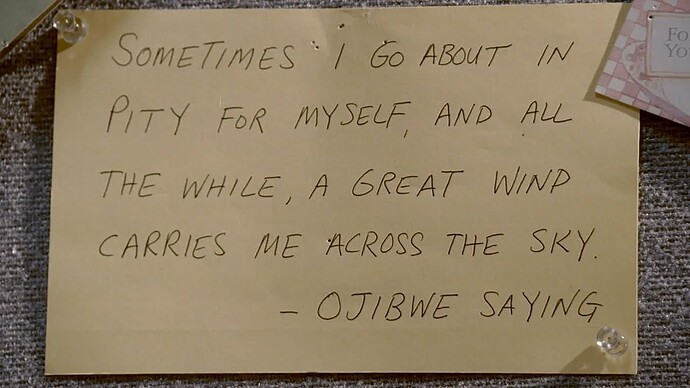 SOMETIMES I GO ABOUT IN
PITY FOR MYSELF, AND ALL
THE WHILE, A GREAT WIND
CARRIES ME ACROSS THE SKY.
- OJIBWE SAYING